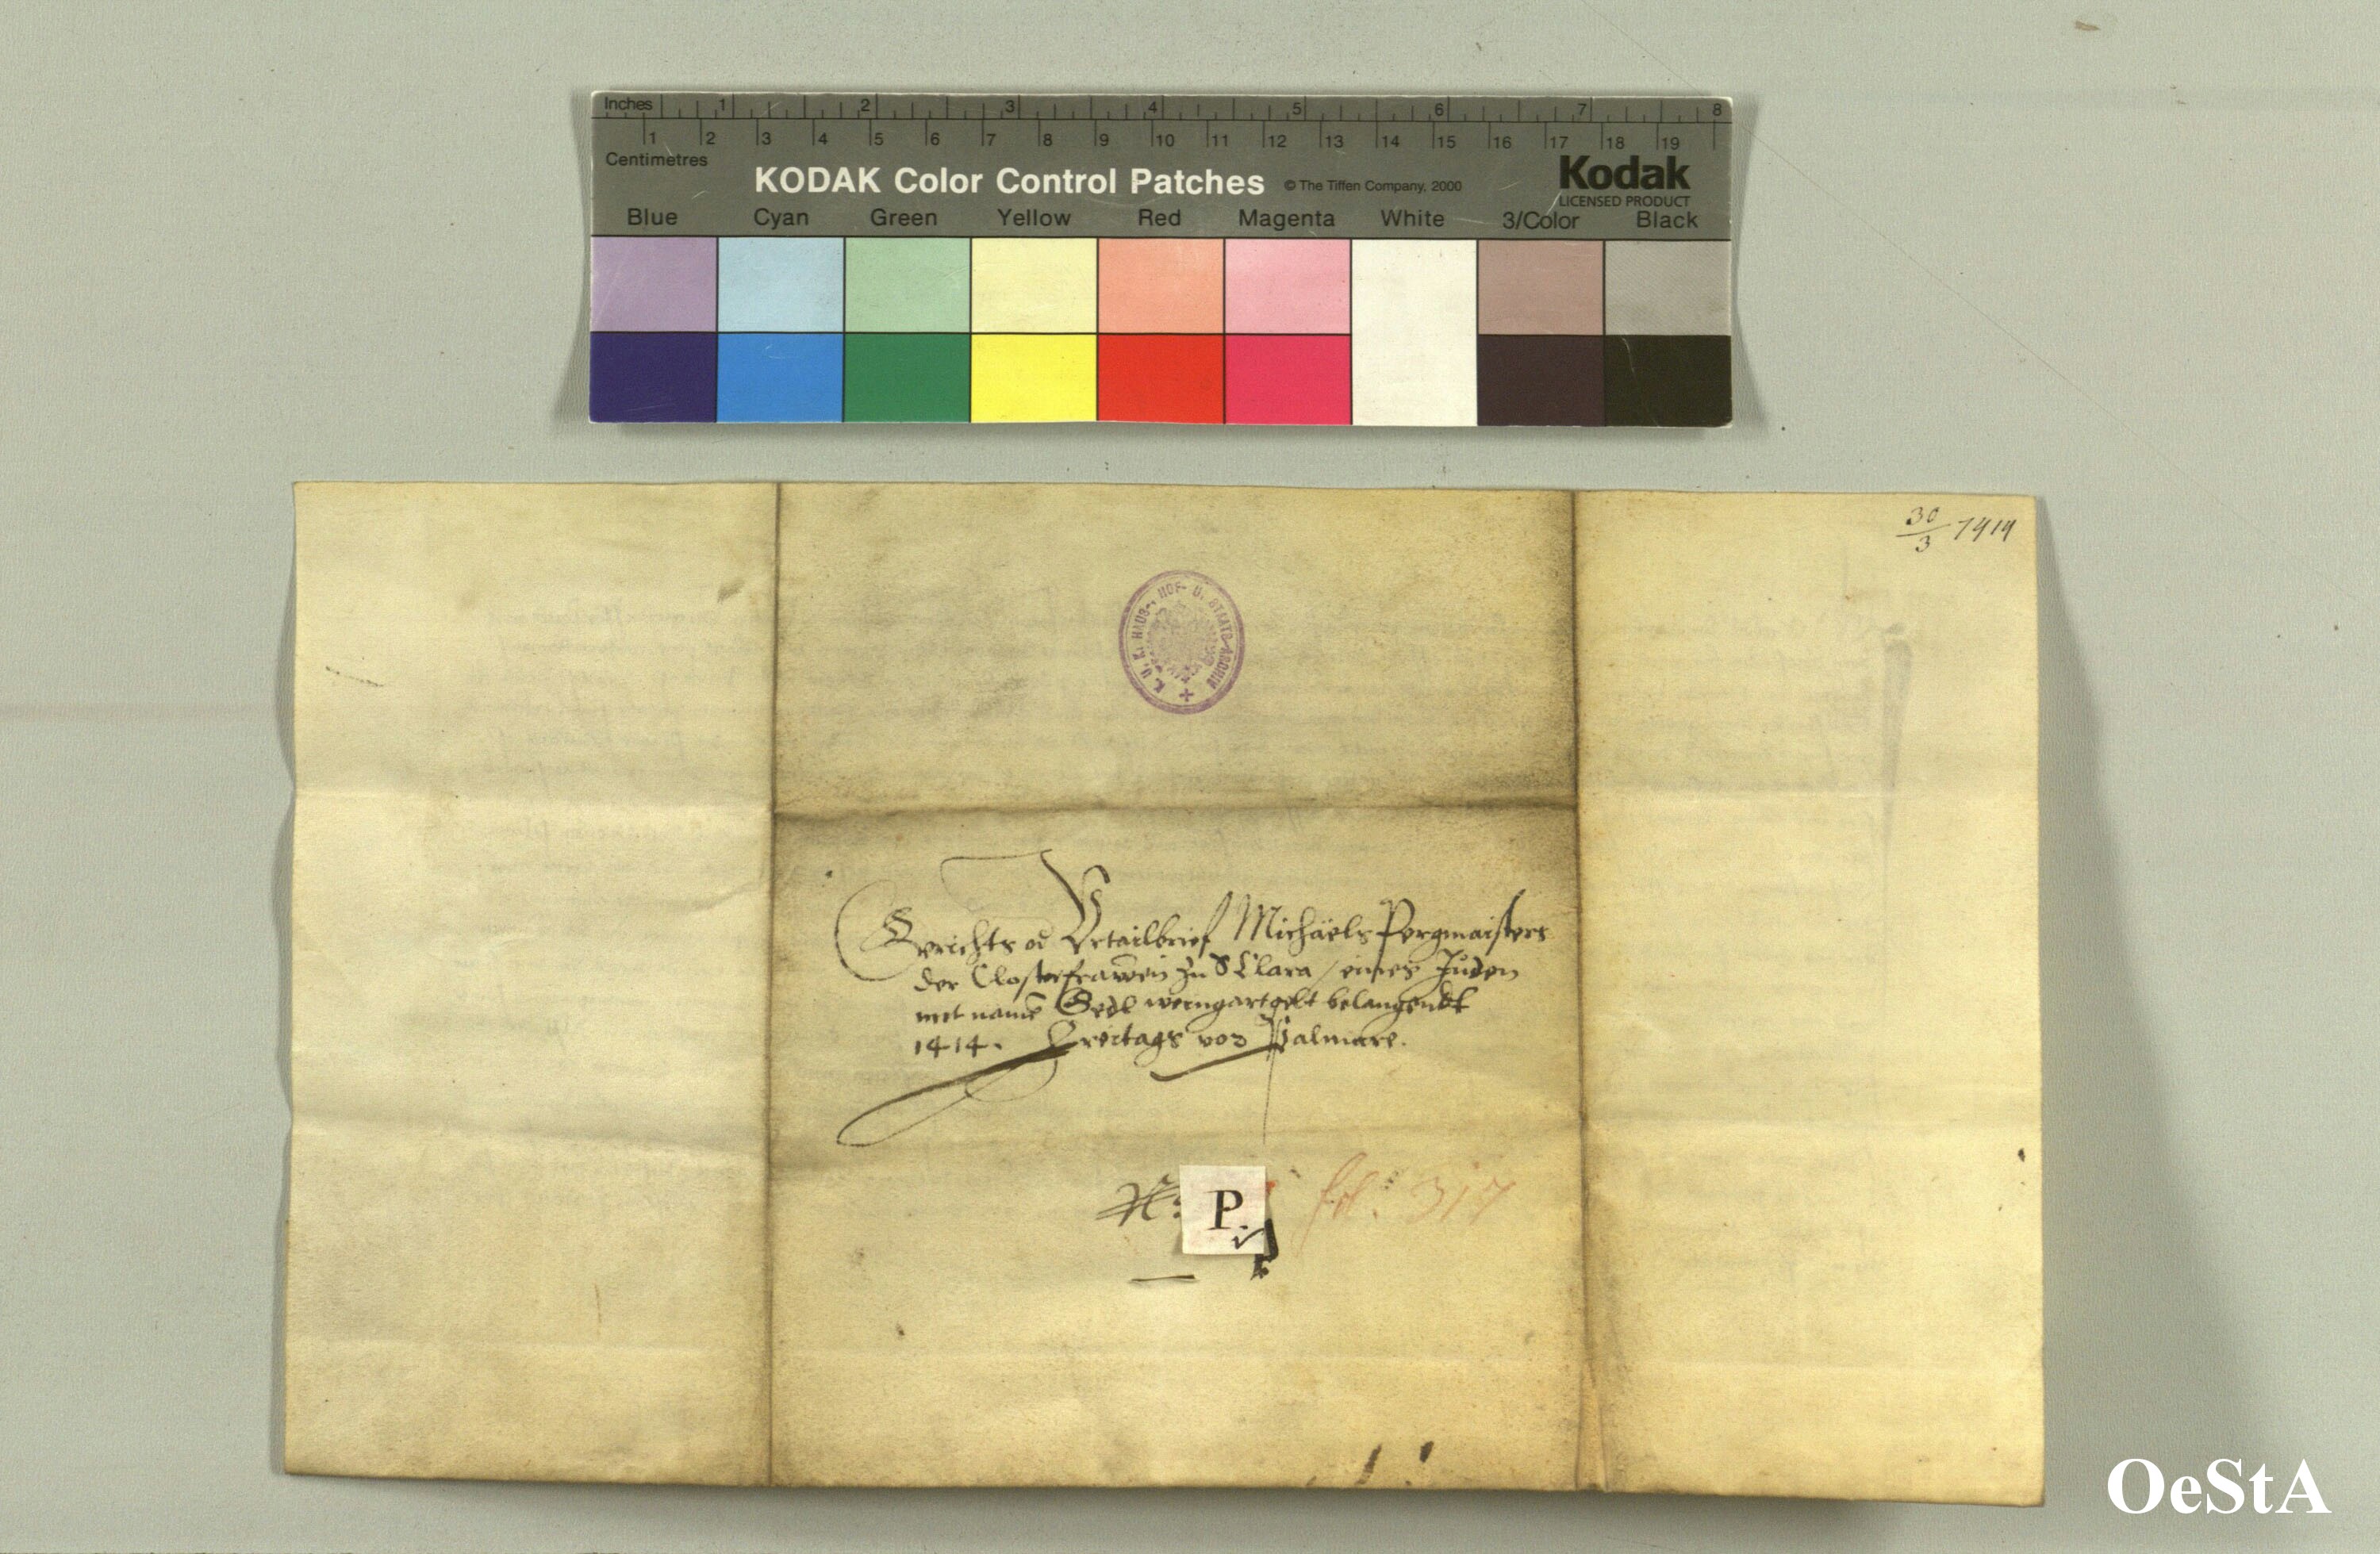 Inches 1 2 3 4 5 6 7 8
1 2 3 4 5 6 7 8 9 10 11 12 13 14 15 16 17 18 19
Centimetres
KODAK Color Control Patches © The Tiffen Company, 2000 Kodak
LICENSED PRODUCT
Blue Cyan Green Yellow Red Magenta White 3/Color Black
30/3 1414
K. U. K. HAUS-, HOF- U. STAATS-ARCHIV
Gerichts od Urtailbrief Michäels Pergmaisters
der Closterfrawen zu S Clara / eines Juden
mit namē weingartgelt belangendt
1414. Freitags vor Palmare.
N: P. fol: 317
OeStA